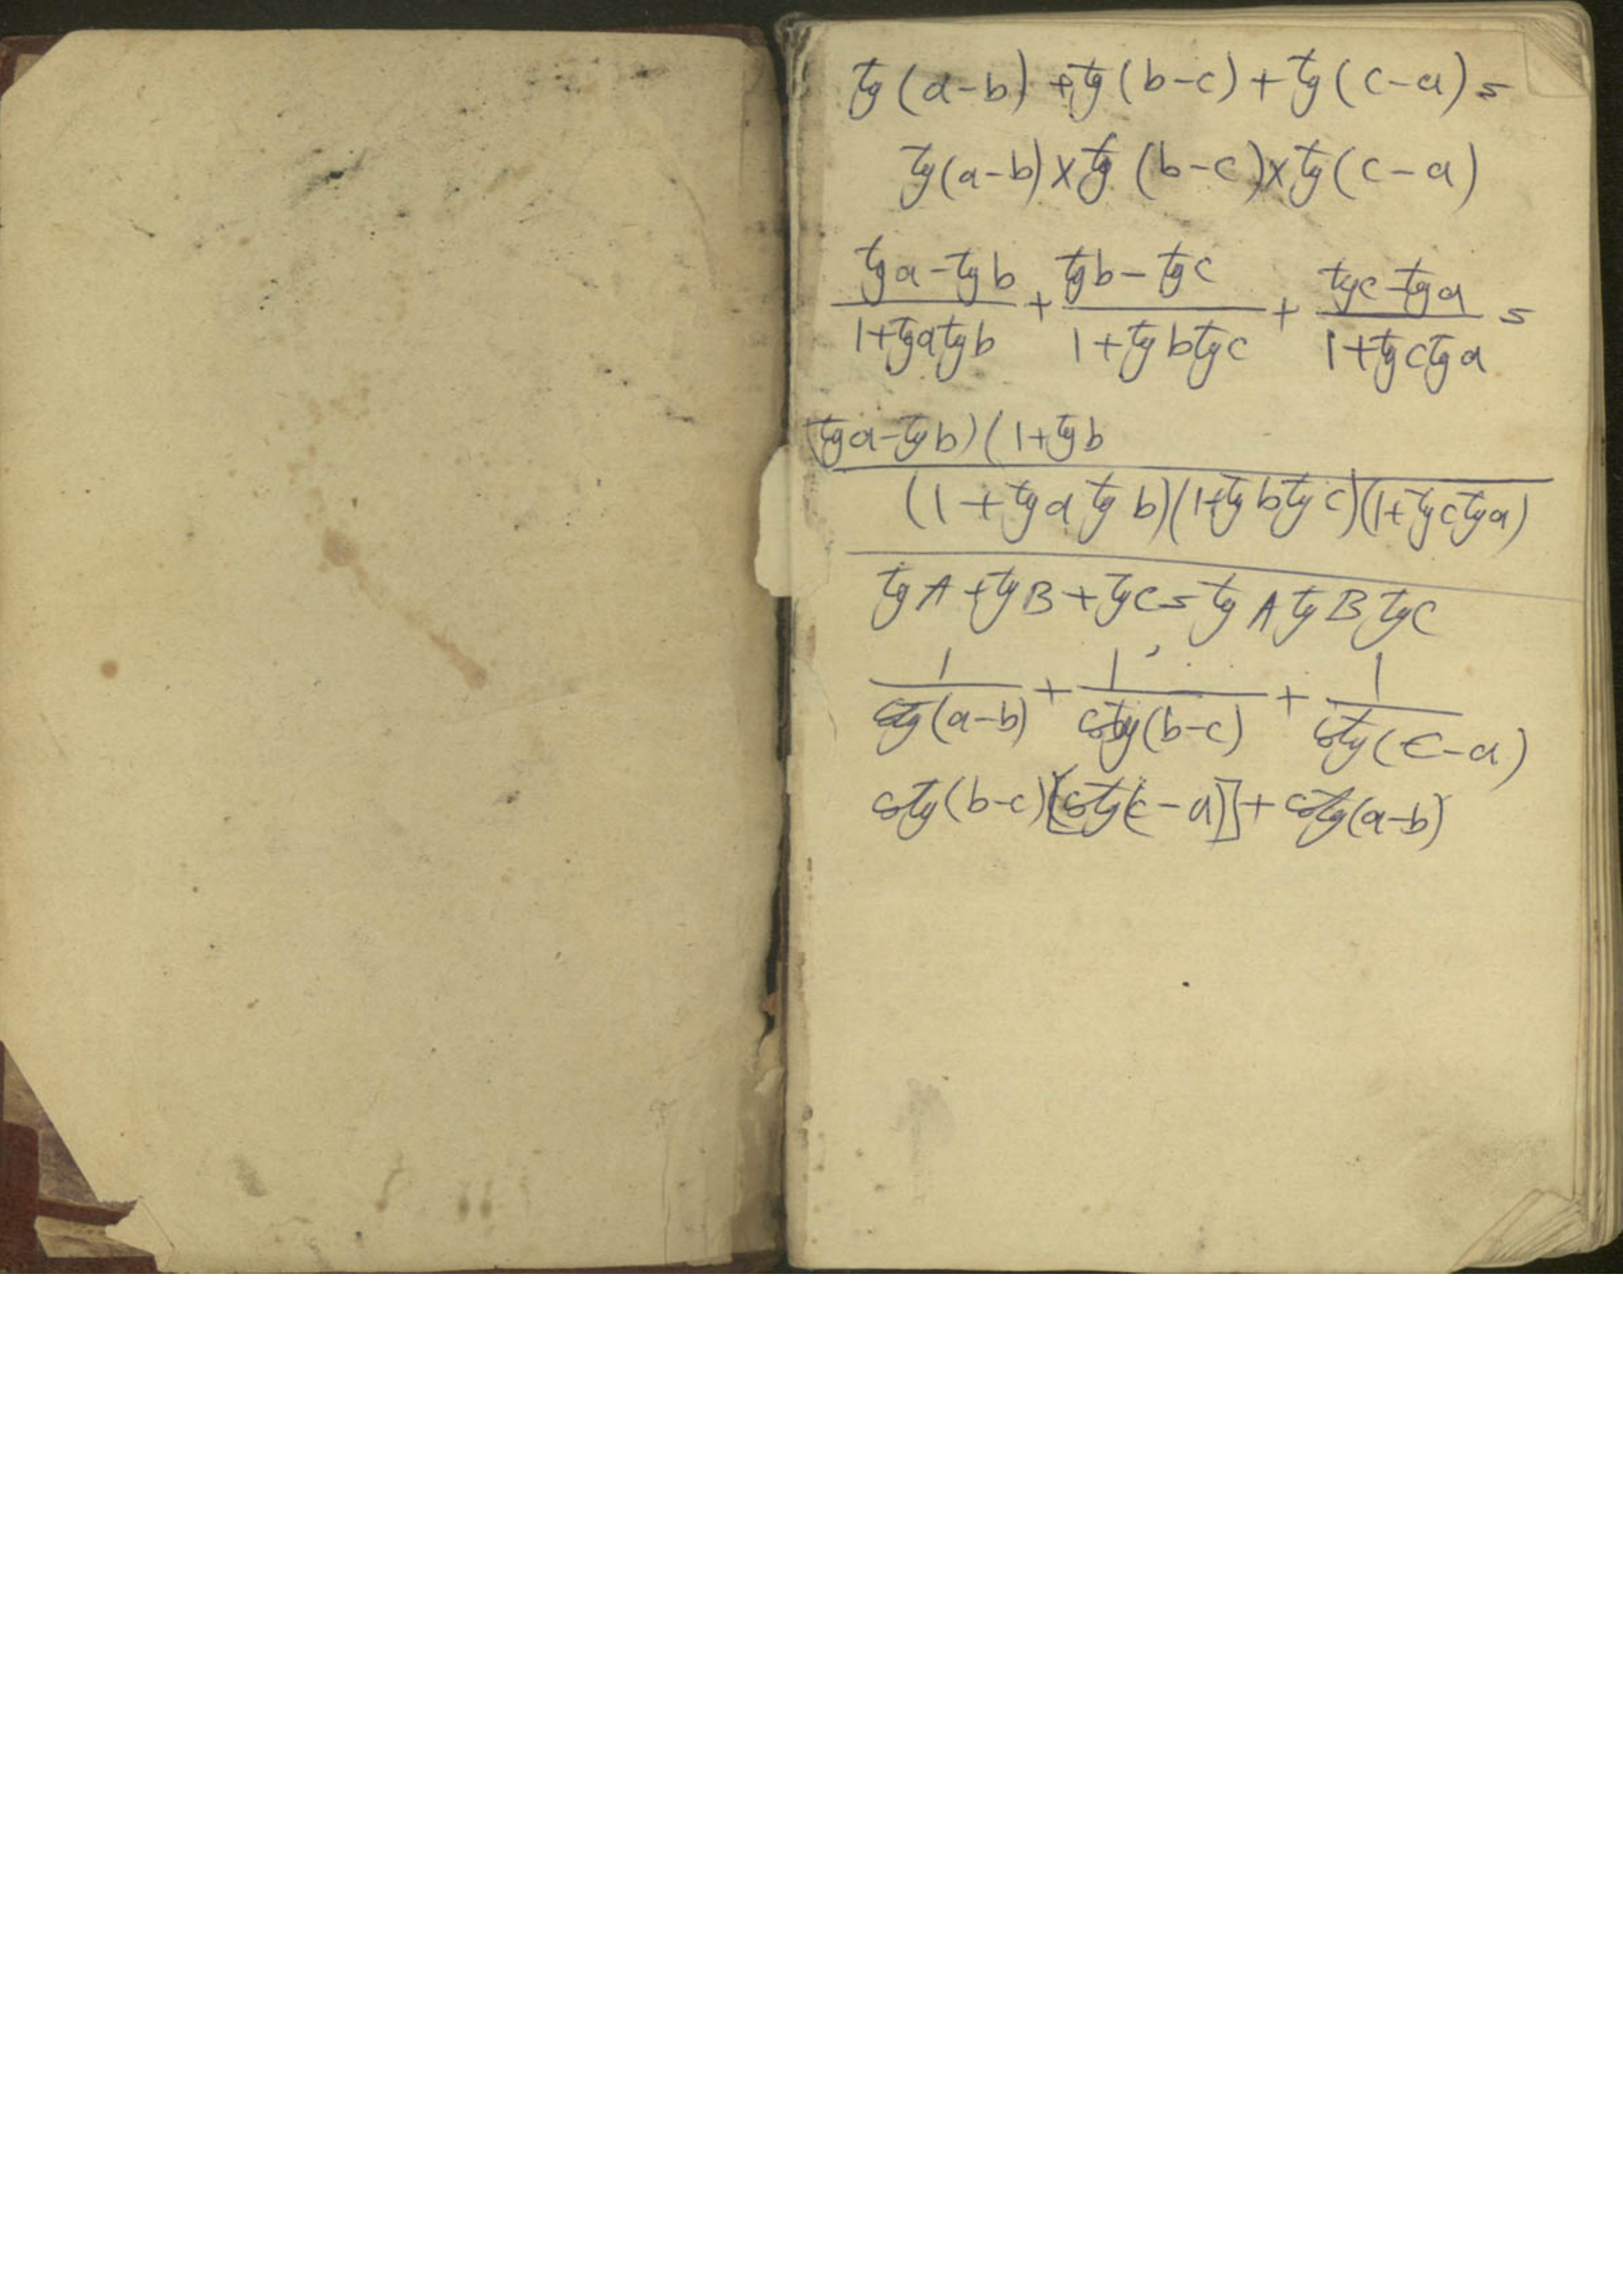 tg(a-b) + tg(b-c) + tg(c-a) =
tg(a-b) x tg(b-c) x tg(c-a)
tga - tgb + tgb - tgc + tgc - tga =
1+tgatgb 1+tgbtgc 1+tgctga
(tga-tgb)(1+tgb
(1+tgatgb)(1+tgbtgc)(1+tgctga)
tgA + tgB + tgC = tgA tgB tgC
1 + 1 + 1
cotg(a-b) cotg(b-c) cotg(c-a)
cotg(b-c)[cotg(c-a)] + cotg(a-b)